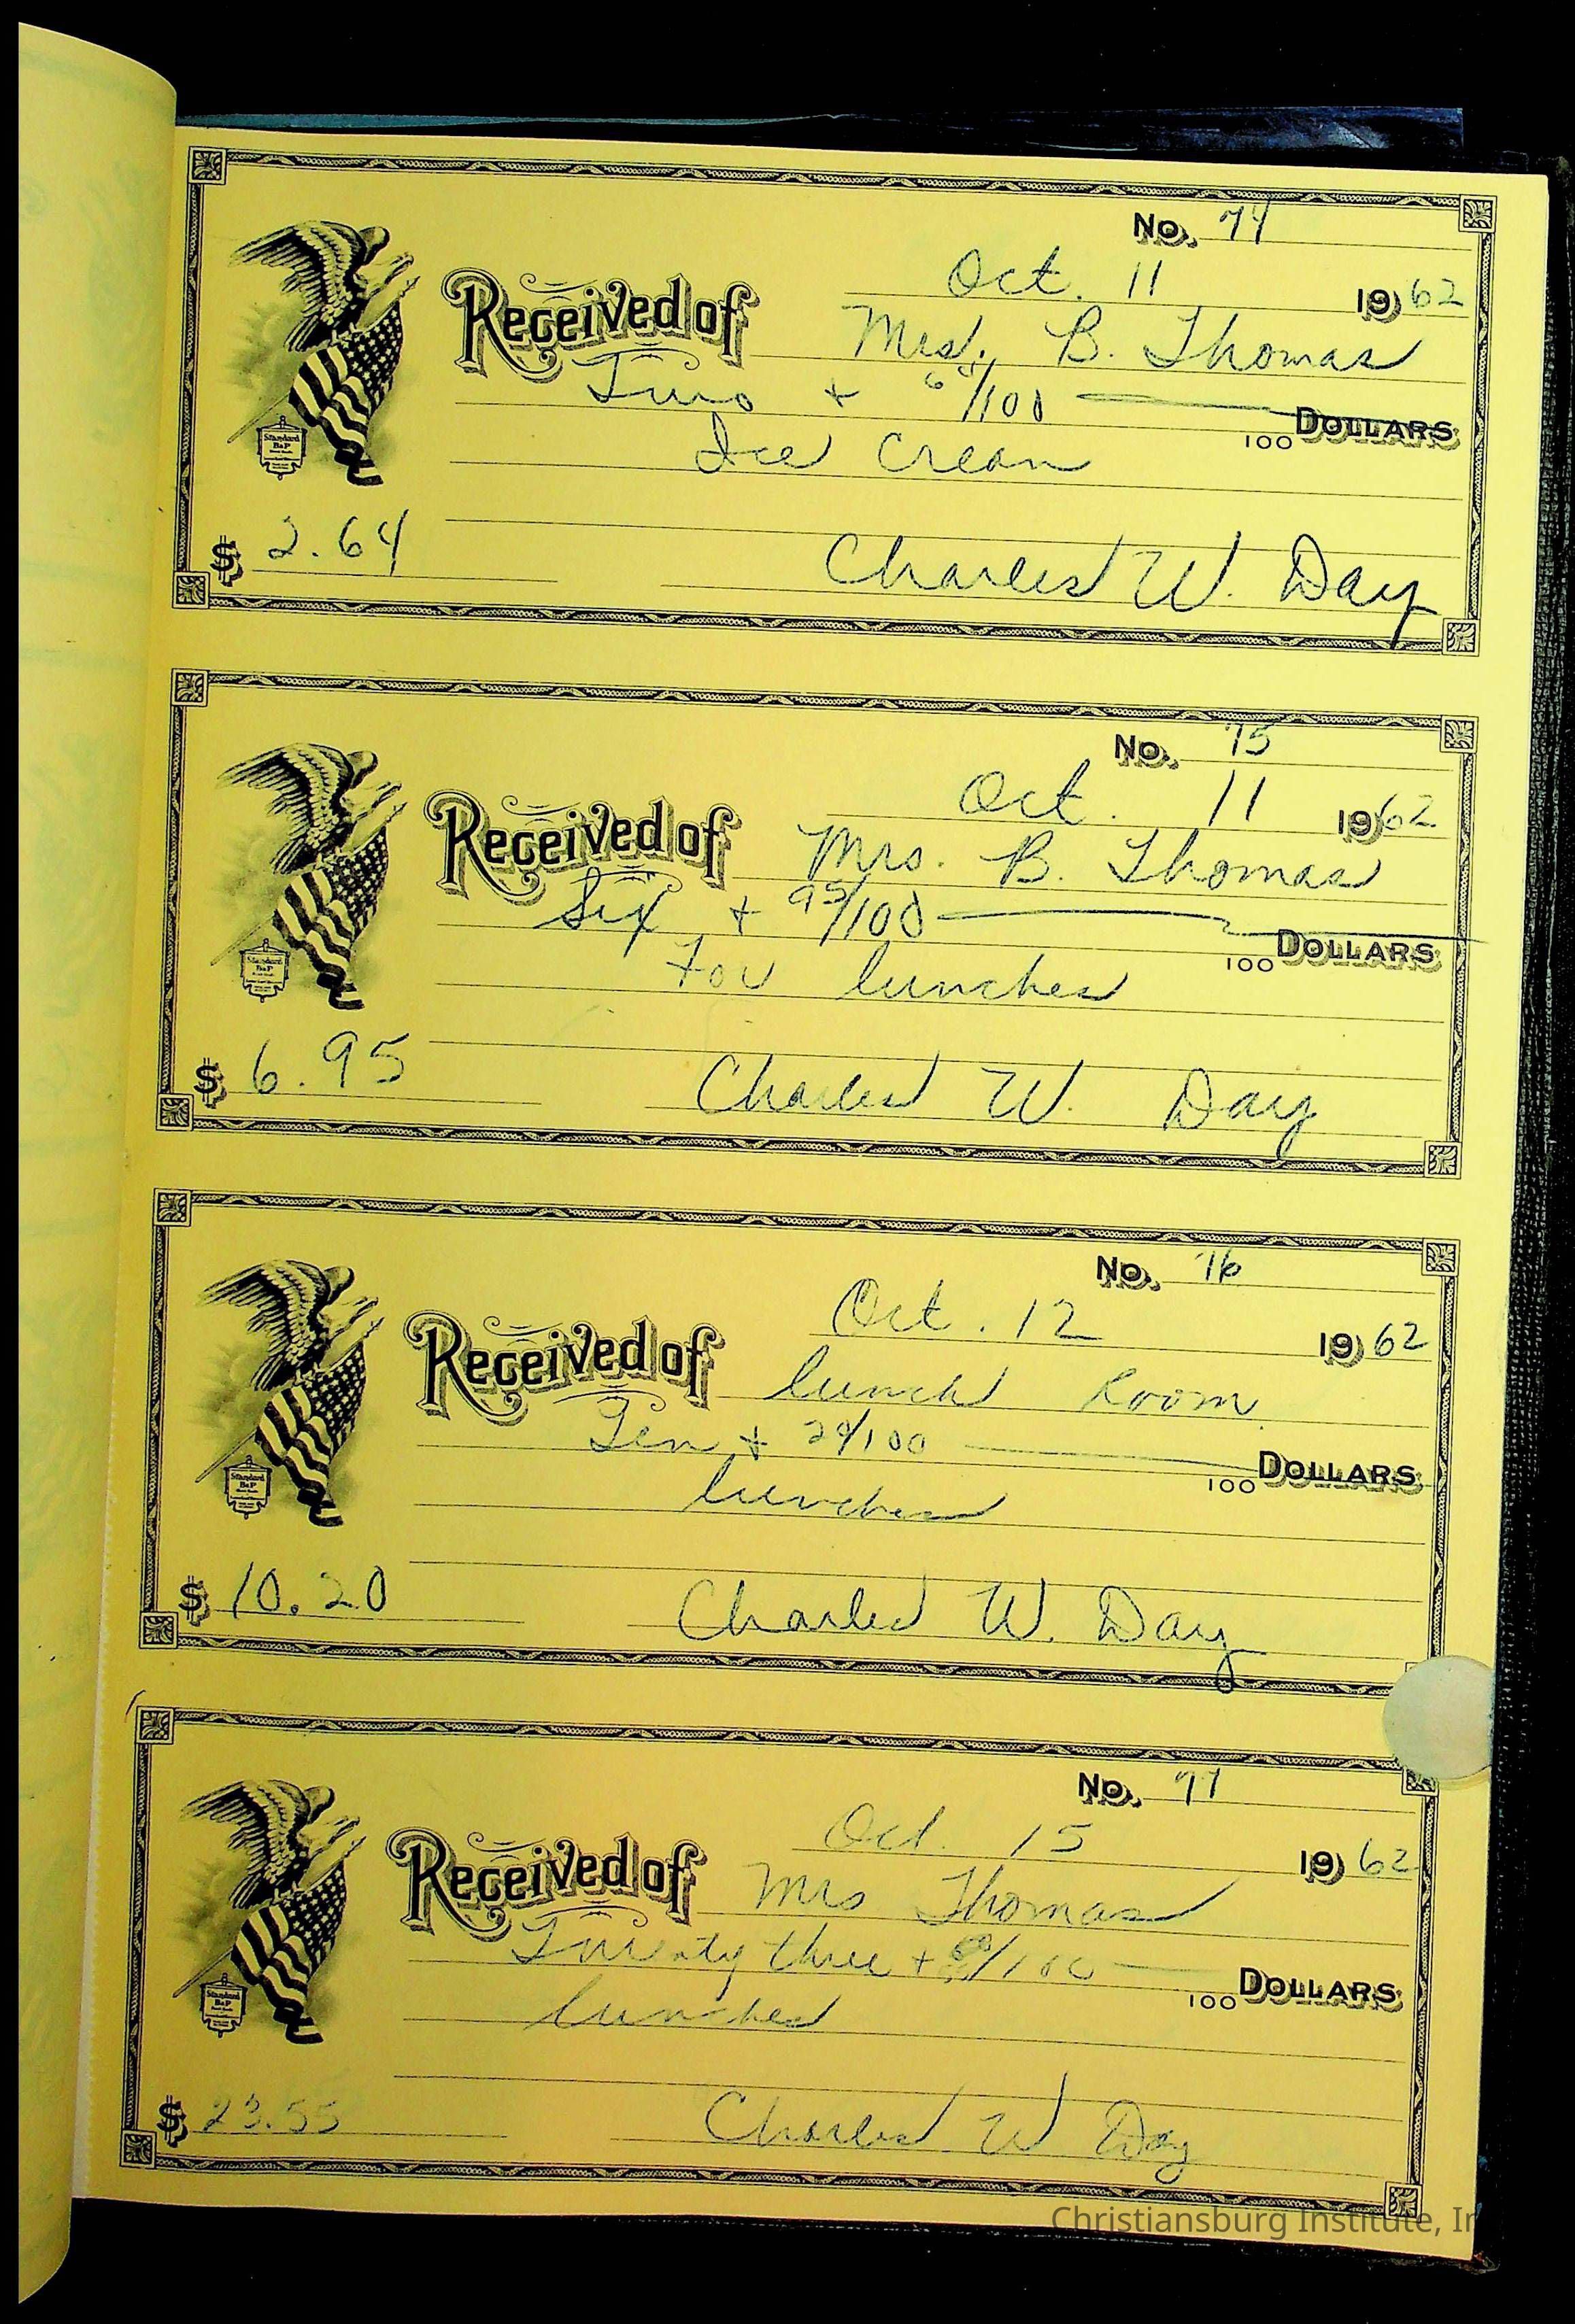 No. 74
Oct. 11 1962
Received of Mrs. B. Thomas
Two + 64/100 100 DOLLARS
Ice Cream
$ 2.64 Charles W. Day
Standard B&P
No. 75
Oct. 11 1962
Received of Mrs. B. Thomas
Six + 95/100 100 DOLLARS
For lunches
$ 6.95 Charles W. Day
Standard B&P
No. 76
Oct. 12 1962
Received of lunch Room
Ten + 20/100 100 DOLLARS
lunches
$ 10.20 Charles W. Day
Standard B&P
No. 77
Oct. 15 1962
Received of Mrs Thomas
Twenty three + /100 100 DOLLARS
lunches
$ 23.55 Charles W Day
Standard B&P
Christiansburg Institute, In